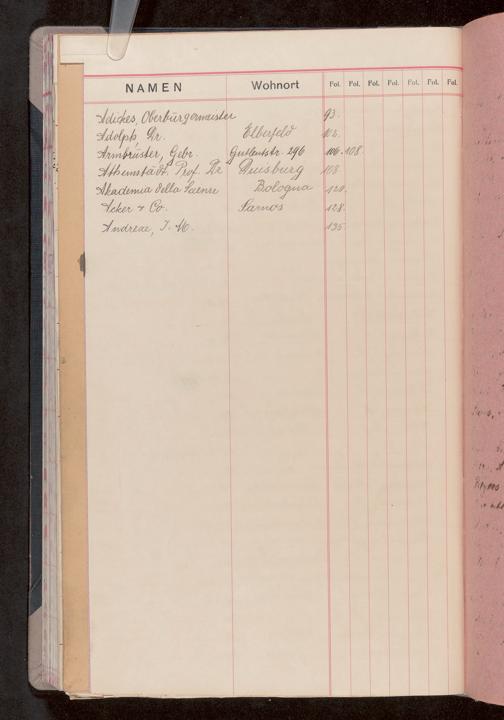 NAMEN Wohnort Fol. Fol. Fol. Fol. Fol. Fol. Fol.
Adickes, Oberbürgermeister 93.
Adolph, Dr. Elberfeld 102.
Armbrüster, Gebr. Gutleutstr. 296 106. 108.
Athenstädt, Prof. Dr Duisburg 108.
Akademia della Scienze Bologna 120.
Acker & Co. Samos 128.
Andreae, J. M. 135.